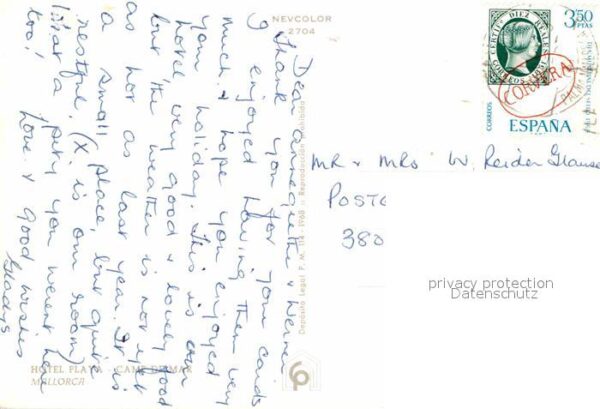 NEVCOLOR
2704
Dear Annegrethe & Werner
Thank you for your cards
I enjoyed having them very
much. & hope you enjoyed
your holiday. This is our
hotel, the very good & lovely food
but the weather is not quite
as hot as last year. It is
a small place, but quite
restful. (X. is our room)
What a pity you weren't here
too!
Love & good wishes
Gladys
HOTEL PLAYA - CAMP DE MAR
MALLORCA
Depósito Legal P. M. 114 - 1968 - Reproducción Prohibida
CERTIFo DIEZ REALES
CORREOS
3,50
PTAS
CORREOS
ESPAÑA
CORVERA
MR & MRS W.
POSTC
380
privacy protection
Datenschutz